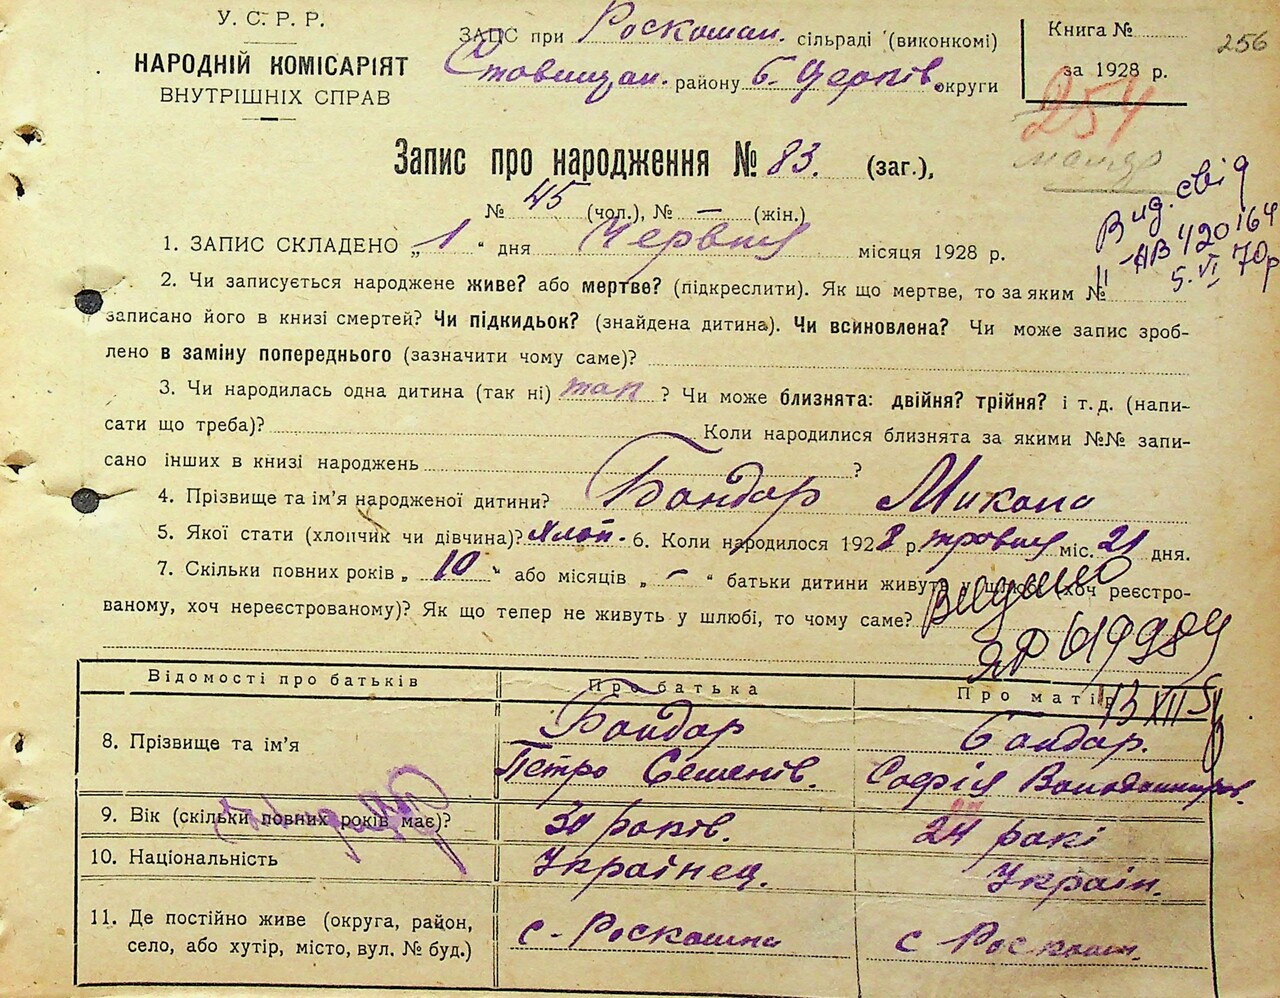 У. С. Р. Р.
НАРОДНІЙ КОМІСАРІЯТ
ВНУТРІШНІХ СПРАВ
ЗАПИС при Роскошан. сільраді (виконкомі)
Ставищан. району Б. Церків. округи
Книга №
256
за 1928 р.
254
Запис про народження № 83. (заг.),
№ 45 (чол.), № — (жін.)
Вид. свід
II-АВ 420164
5. VI 70р
1. ЗАПИС СКЛАДЕНО „1“ дня Червня місяця 1928 р.
2. Чи записується народжене живе? або мертве? (підкреслити). Як що мертве, то за яким №
записано його в книзі смертей? Чи підкидьок? (знайдена дитина). Чи всиновлена? Чи може запис зроб-
лено в заміну попереднього (зазначити чому саме)?
3. Чи народилась одна дитина (так ні) так ? Чи може близнята: двійня? трійня? і т. д. (напи-
сати що треба)? Коли народилися близнята за якими №№ запи-
сано інших в книзі народжень ?
4. Прізвище та ім’я народженої дитини? Бондар Микола
5. Якої стати (хлопчик чи дівчина)? Хлоп. 6. Коли народилося 1928 р. травня міс. 21 дня.
7. Скільки повних років „10“ або місяців „-“ батьки дитини живуть у шлюбі хоч реєстро-
ваному, хоч нереєстрованому)? Як що тепер не живуть у шлюбі, то чому саме?
Видано
ЯР 619984
13 XII
Відомості про батьків
Про батька
Про матір
8. Прізвище та ім’я
Бондар
Петро Семенів.
Бондар.
Софія Володимиров.
9. Вік (скільки повних років має)?
30 років.
24 рокі
10. Національність
Українец.
Україн.
11. Де постійно живе (округа, район,
село, або хутір, місто, вул. № буд.)
с. Роскошна
с Роскош.